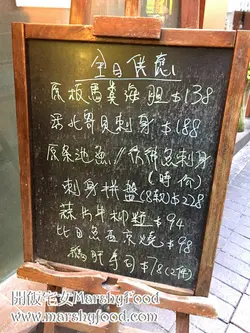 全日供應
原板馬糞海胆 $138
活北寄貝刺身 $188
原条池魚//伙伴魚刺身
(時价)
刺身拼盤(8款)$228
蒜片牛柳粒 $94
比目魚西京燒 $98
鵝肝手司 $78(2件)
開飯宅女MarsbyFood
www.marsbyfood.com